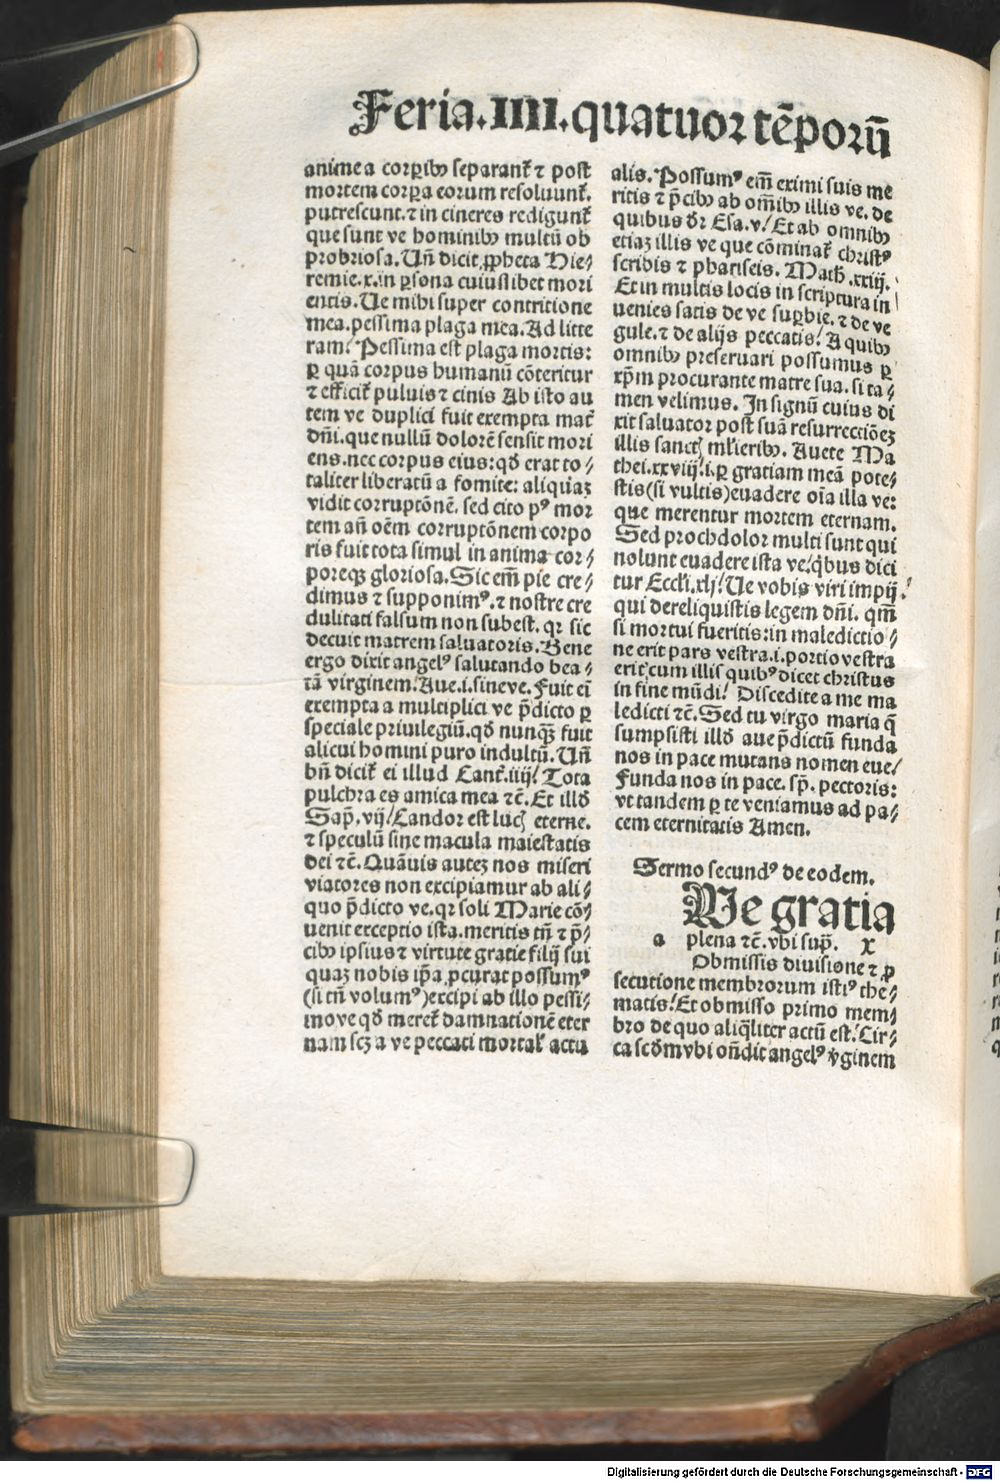 Feria.IIII.quatuor tēporū
anime a corꝑibꝰ separant᷑ ⁊ post
mortem corꝑa eorum resoluunt᷑.
putrescunt.⁊ in cineres redigunt᷑
que sunt ve hominibꝰ multū ob
probriosa. Un̄ dicit ꝓpheta Hie⸗
remie.x.in ꝑsona cuiuslibet mori
entis. Ue mihi super contritione
mea.pessima plaga mea. Ad litte
ram/ Pessima est plaga mortis:
ꝑ quā corpus humanū cōteritur
⁊ efficit᷑ puluis ⁊ cinis Ab isto au
tem ve duplici fuit exempta mat᷑
dn̄i.que nullū dolorē sensit mori
ens.nec corpus eius:qđ erat to⸗
taliter liberatū a fomite: aliquāꝫ
vidit corruptōnē. sed cito pꝰ mor
tem an̄ oēm corruptōnem corpo
ris fuit tota simul in anima cor⸗
poreqꝫ gloriosa. Sic em̄ pie cre⸗
dimus ⁊ supponimꝰ.⁊ nostre cre
dulitati falsum non subest. qꝛ sic
decuit matrem saluatoris. Bene
ergo dixit angelꝰ salutando bea⸗
tā virginem. Aue.i.sine ve. Fuit em̄
exempta a multiplici ve p̄dicto ꝑ
speciale priuilegiū.qđ nunqꝫ fuit
alicui homini puro indultū. Un̄
bn̄ dicit᷑ ei illud Cant᷑.iiij/ Tota
pulchra es amica mea ⁊c̄. Et illđ
Sap̄.vij/ Candor est lucꝭ eterne.
⁊ speculū sine macula maiestatis
dei ⁊c̄. Quāuis auteꝫ nos miseri
viatores non excipiamur ab ali⸗
quo p̄dicto ve.qꝛ soli Marie cō⸗
uenit exceptio ista.meritis tn̄ ⁊ p̄⸗
cibꝰ ipsius ⁊ virtute gratie filij sui
quaꝫ nobis ip̄a ꝓcurat possumꝰ
(si tn̄ volumꝰ)excipi ab illo pessi⸗
mo ve qđ meret᷑ damnationē eter
nam scꝫ a ve peccati mortal᷑ actu
alis. Possumꝰ em̄ eximi suis me
ritis ⁊ p̄cibꝰ ab om̄ibꝰ illis ve. de
quibus dr̄ Esa.v/ Et ab omnibꝰ
etiaꝫ illis ve que cōminat᷑ christꝰ
scribis ⁊ phariseis. Math̄.xxiij.
Et in multis locis in scriptura in
uenies satis de ve suꝑbie.⁊ de ve
gule.⁊ de alijs peccatis/ A quibꝰ
omnibꝰ preseruari possumus ꝑ
xp̄m procurante matre sua. si ta⸗
men velimus. In signū cuius di
xit saluator post suā resurrectiōeꝫ
illis sanctꝭ ml̄ieribꝰ. Auete Ma
thei.xxviij/.i.ꝑ gratiam meā pote⸗
stis(si vultis)euadere oīa illa ve:
que merentur mortem eternam.
Sed prochdolor multi sunt qui
nolunt euadere ista ve/q̇bus dici
tur Eccl̄i.xlj/ Ue vobis viri impij/
qui dereliquistis legem dn̄i. qm̄
si mortui fueritis:in maledictio⸗
ne erit pars vestra.i.portio vestra
erit cum illis quibꝰ dicet christus
in fine mūdi/ Discedite a me ma
ledicti ⁊c̄. Sed tu virgo maria q̄
sumpsisti illđ aue p̄dictū funda
nos in pace mutans nomen eue/
Funda nos in pace. sp̄. pectoris:
vt tandem ꝑ te veniamus ad pa⸗
cem eternitatis Amen.
Sermo secundꝰ de eodem.
a We gratia
plena ⁊c̄.vbi sup̄. x
Obmissis diuisione ⁊ ꝓ
secutione membrorum istiꝰ the⸗
matis/ Et obmisso primo mem⸗
bro de quo aliq̇liter actū est/ Cir⸗
ca scđm vbi on̄dit angelꝰ v̇ginem
Digitalisierung gefördert durch die Deutsche Forschungsgemeinschaft - DFG